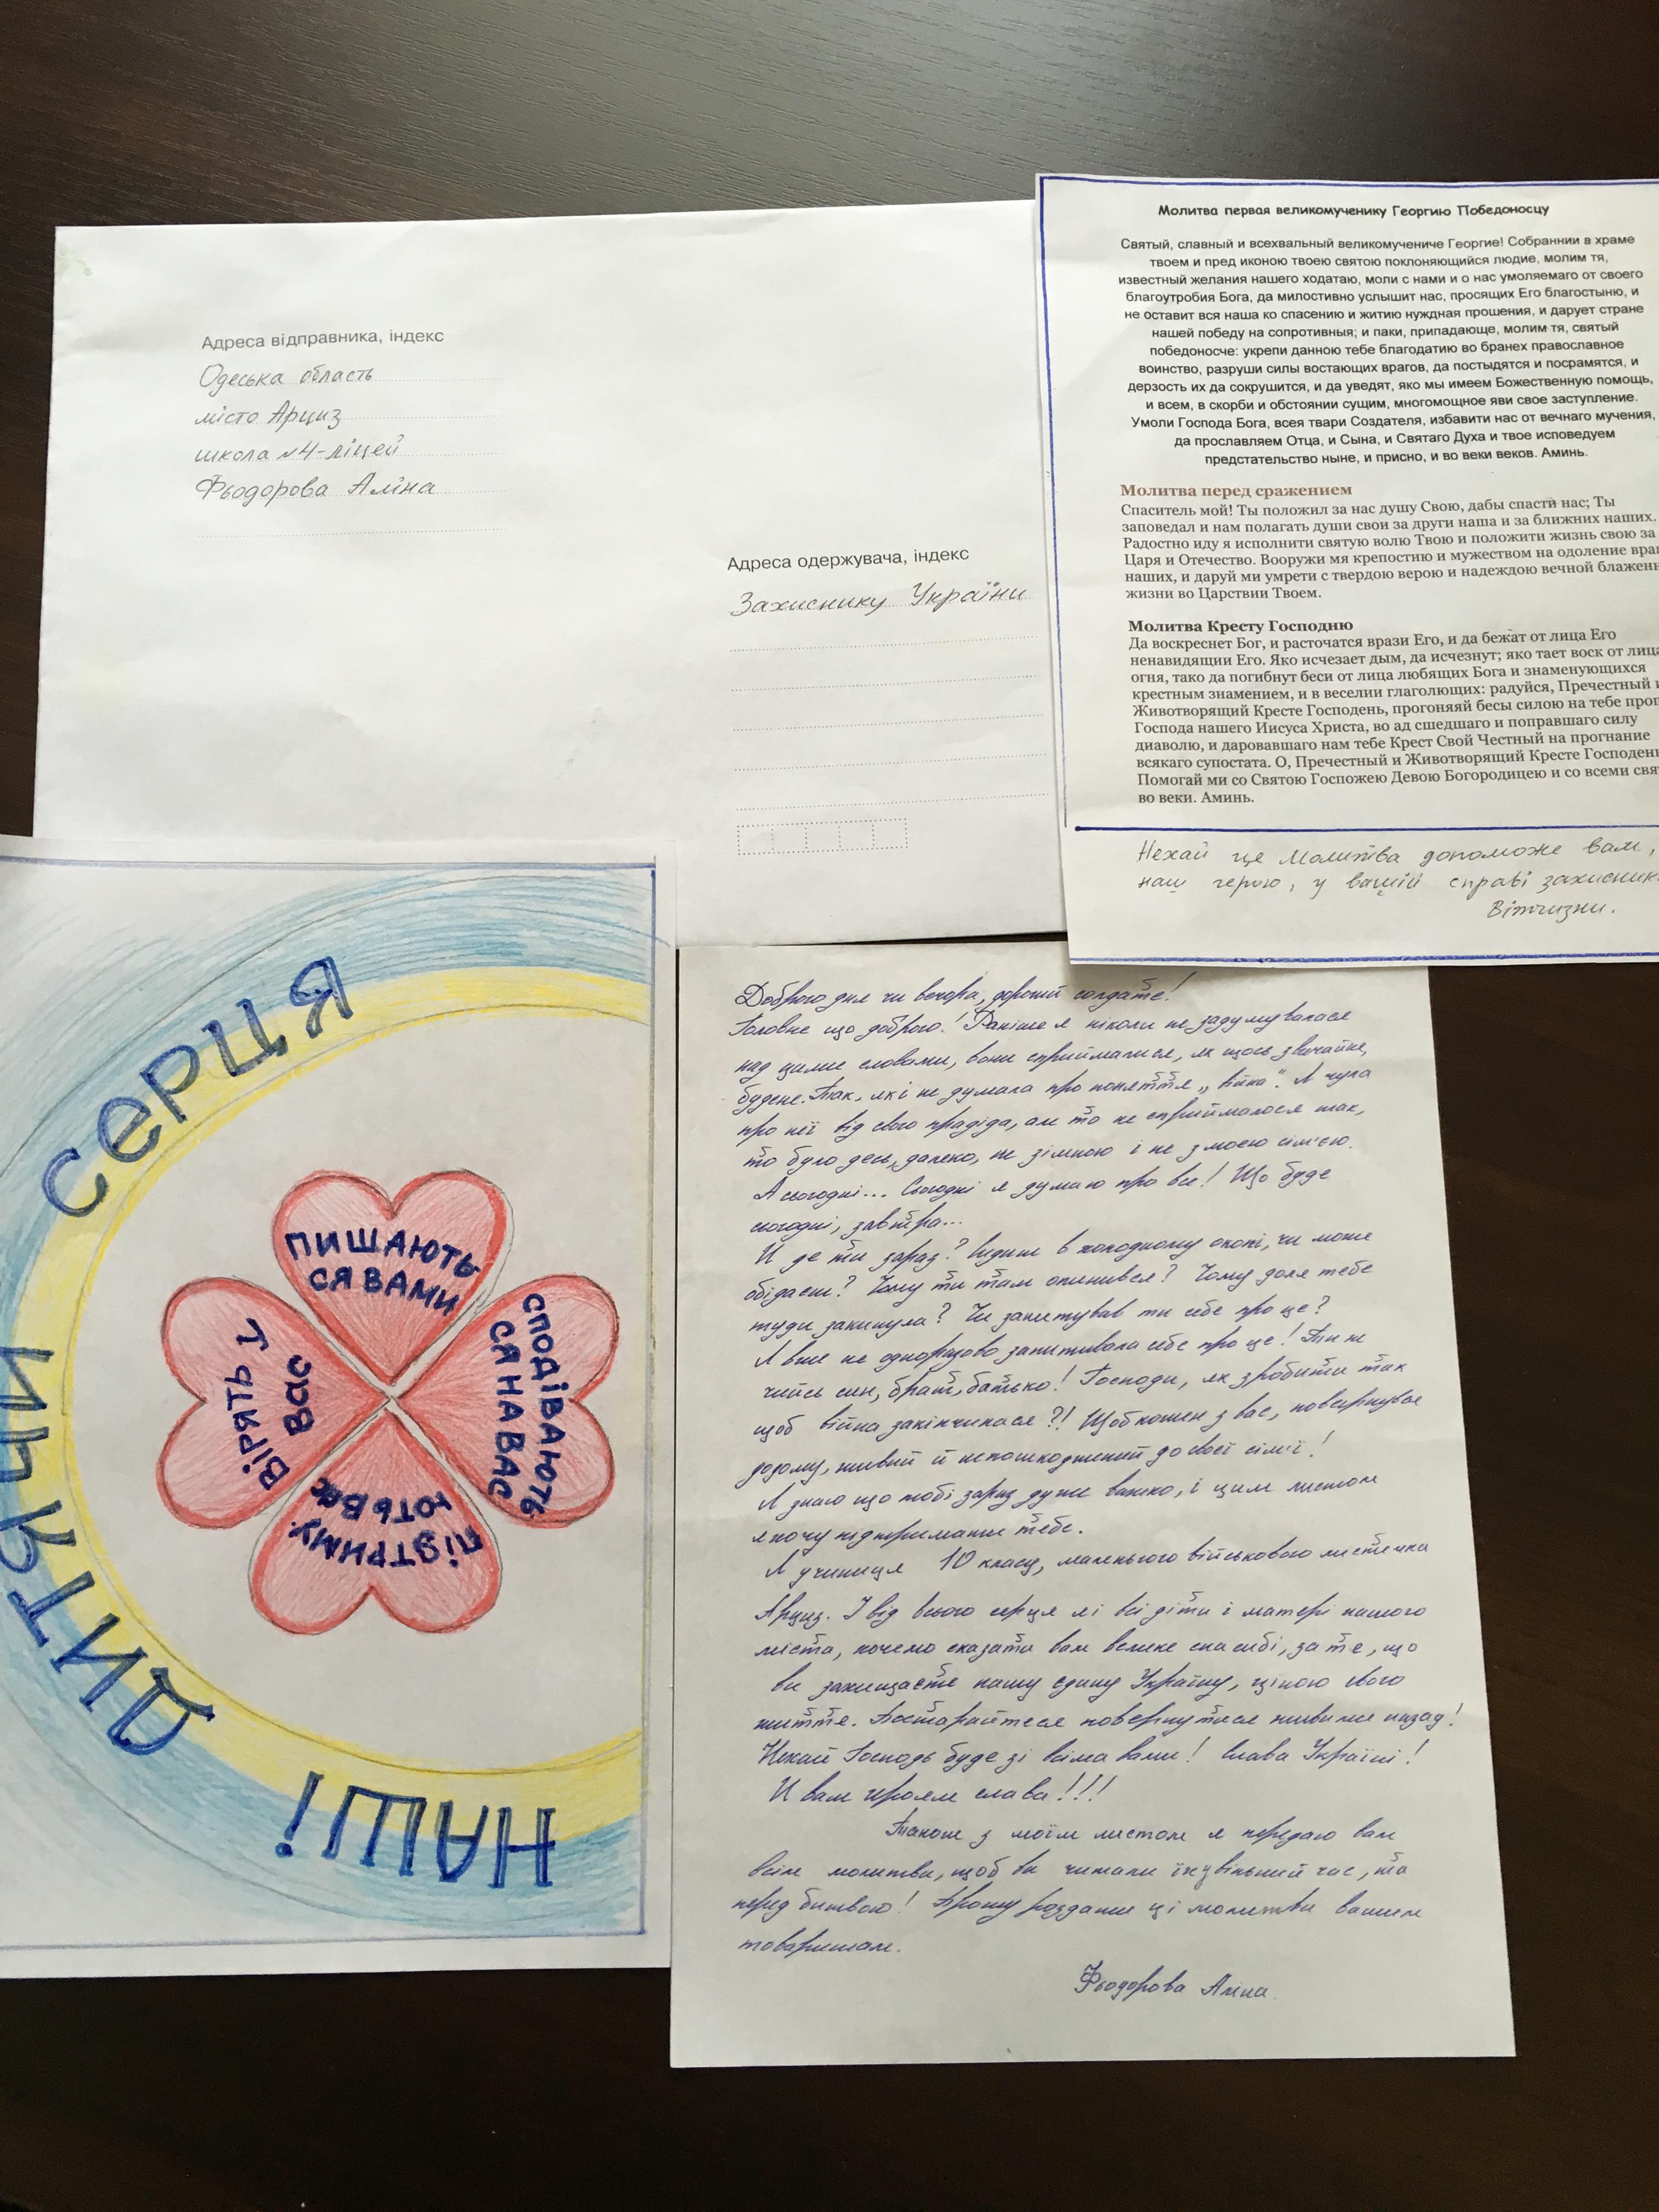 Адреса відправника, індекс
Одеська область
місто Арциз
школа №4-ліцей
Фьодорова Аліна
Адреса одержувача, індекс
Захиснику України
Молитва первая великомученику Георгию Победоносцу
Святый, славный и всехвальный великомучениче Георгие! Собраннии в храме
твоем и пред иконою твоею святою поклоняющийся людие, молим тя,
известный желания нашего ходатаю, моли с нами и о нас умоляемаго от своего
благоутробия Бога, да милостивно услышит нас, просящих Его благостыню, и
не оставит вся наша ко спасению и житию нуждная прошения, и дарует стране
нашей победу на сопротивныя; и паки, припадающе, молим тя, святый
победоносче: укрепи данною тебе благодатию во бранех православное
воинство, разруши силы востающих врагов, да постыдятся и посрамятся, и
дерзость их да сокрушится, и да уведят, яко мы имеем Божественную помощь,
и всем, в скорби и обстоянии сущим, многомощное яви свое заступление.
Умоли Господа Бога, всея твари Создателя, избавити нас от вечнаго мучения,
да прославляем Отца, и Сына, и Святаго Духа и твое исповедуем
предстательство ныне, и присно, и во веки веков. Аминь.
Молитва перед сражением
Спаситель мой! Ты положил за нас душу Свою, дабы спасти нас; Ты
заповедал и нам полагать души свои за други наша и за ближних наших.
Радостно иду я исполнити святую волю Твою и положити жизнь свою за
Царя и Отечество. Вооружи мя крепостию и мужеством на одоление враг
наших, и даруй ми умрети с твердою верою и надеждою вечной блаженн
жизни во Царствии Твоем.
Молитва Кресту Господню
Да воскреснет Бог, и расточатся врази Его, и да бежат от лица Его
ненавидящии Его. Яко исчезает дым, да исчезнут; яко тает воск от лица
огня, тако да погибнут беси от лица любящих Бога и знаменующихся
крестным знамением, и в веселии глаголющих: радуйся, Пречестный и
Животворящий Кресте Господень, прогоняяй бесы силою на тебе проп
Господа нашего Иисуса Христа, во ад сшедшаго и поправшаго силу
диаволю, и даровавшаго нам тебе Крест Свой Честный на прогнание
всякаго супостата. О, Пречестный и Животворящий Кресте Господень
Помогай ми со Святою Госпожею Девою Богородицею и со всеми свя
во веки. Аминь.
Нехай це Молитва допоможе вам,
наш герою, у вашій справі захисник
Вітчизни.
НАШІ
ДИТЯЧІ
СЕРЦЯ
ПИШАЮТЬ
СЯ ВАМИ
СПОДІВАЮТЬ
СЯ НА ВАС
ПІДТРИМУ
ЮТЬ ВАС
ВІРЯТЬ У
ВАС
Доброго дня чи вечора, дорогий солдате!
Головне що доброго! Раніше я ніколи не задумувалася
над цими словами, вони сприймалися, як щось звичайне,
буденне. Так, як і не думала про поняття „війна". Я чула
про неї від свого прадіда, але то не сприймалося так,
то було десь, далеко, не зі мною і не з моєю сім'єю.
А сьогодні... Сьогодні я думаю про все! Що буде
сьогодні, завтра...
И де ти зараз? Сидиш в холодному окопі, чи може
обідаєш? Чому ти там опинився? Чому доля тебе
туди закинула? Чи запитував ти себе про це?
Я вже не одноразово запитувала себе про це! Ти же
чийсь син, брат, батько! Господи, як зробити так
щоб війна закінчилася?! Щоб кожен з вас, повернувся
додому, живий й непошкоджений до своєї сім'ї!
Я знаю що тобі зараз дуже важко, і цим листом
я хочу підтримати тебе.
Я учениця 10 класу, маленького військового містечка
Арциз. І від всього серця я і всі діти і матері нашого
міста, хочемо сказати вам велике спасибі, за те, що
ви захищаєте нашу єдину Україну, ціною свого
життя. Постарайтеся повернутися живими назад!
Нехай Господь буде зі всіма вами! Слава Україні!
И вам героям слава!!!
Також з моїм листом я передаю вам
всім молитви, щоб ви читали їх у вільний час, та
перед битвою! Прошу роздати ці молитви вашим
товаришам.
Фьодорова Аліна.